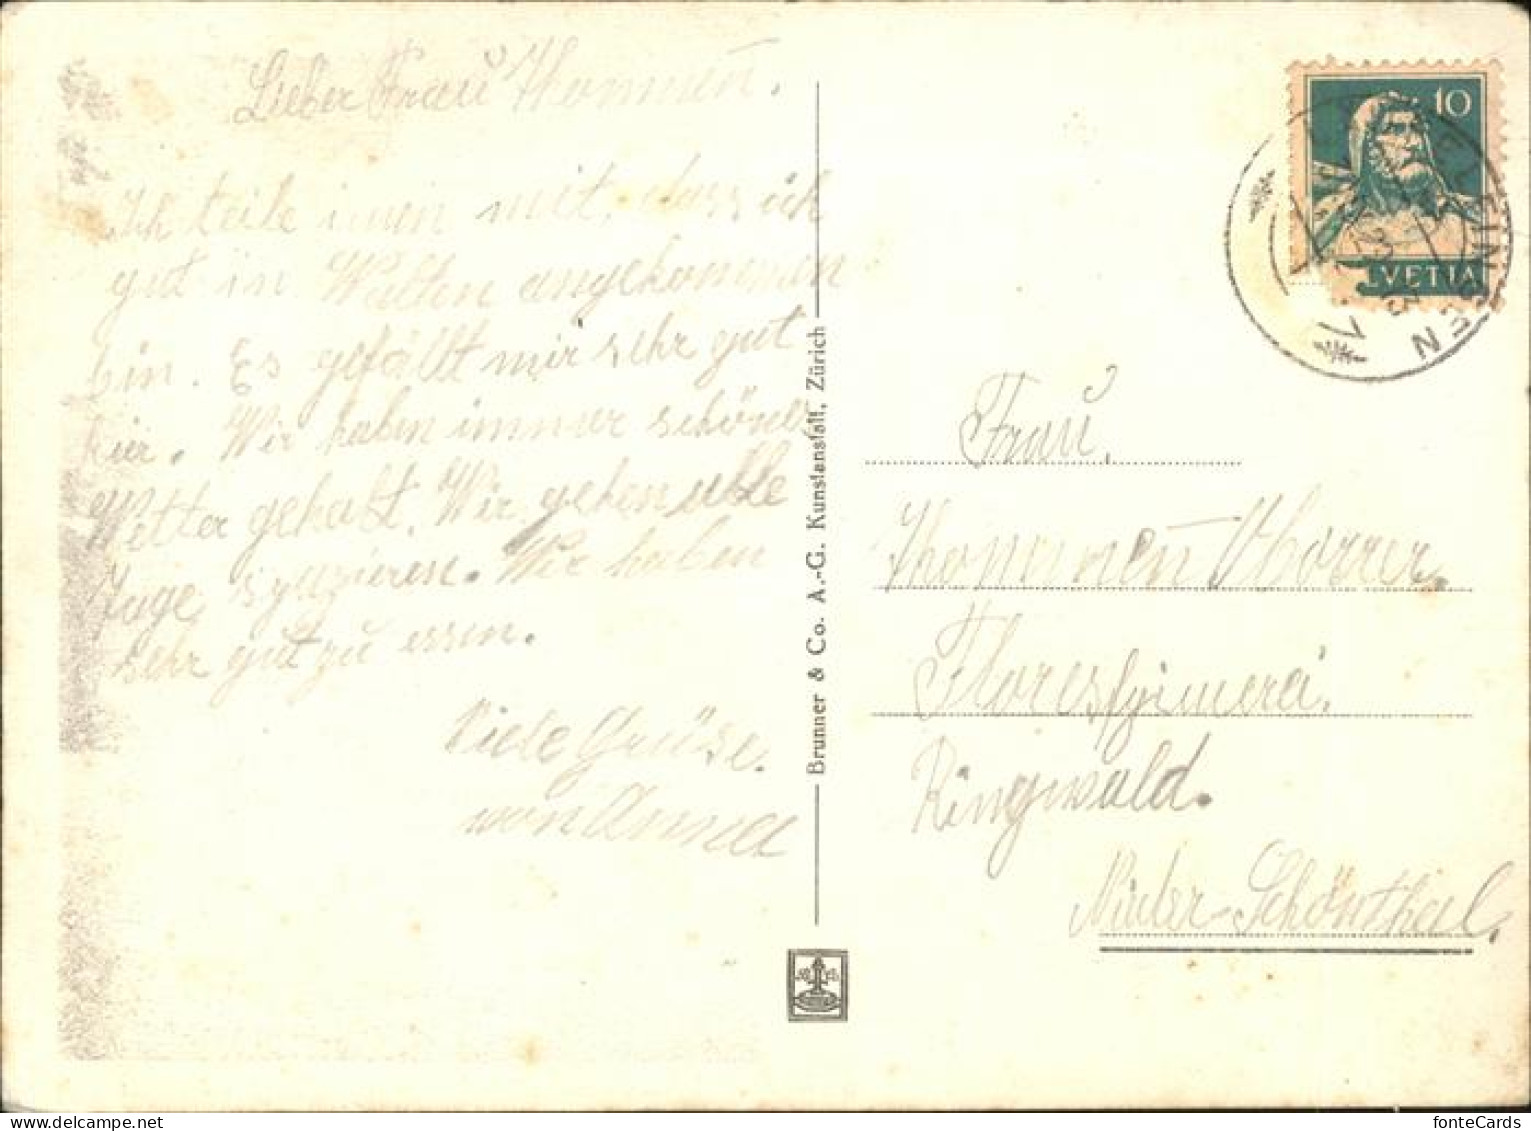 Lieber Frau Thommen.
Ich teile inen mit, dass ich
gut in Walten angekommen
bin. Es gefällt mir sehr gut
hier. Wir haben immer schönes
Wetter gehabt. Wir gehen alle
Tage spazieren. Wir haben
sehr gut zu essen.
Viele Grüse.
von Anna
Brunner & Co. A.-G. Kunstanstalt, Zürich
10
HELVETIA
Frau,
Thommen
Ringwald.
Nieder-Schönthal.
fonteCards